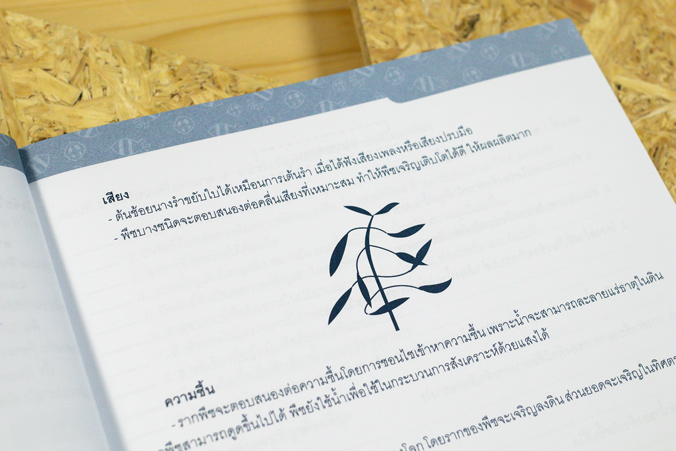 เสียง
- ต้นช้อยนางรำขยับใบได้เหมือนการเต้นรำ เมื่อได้ฟังเสียงเพลงหรือเสียงปรบมือ
- พืชบางชนิดจะตอบสนองต่อคลื่นเสียงที่เหมาะสม ทำให้พืชเจริญเติบโตได้ดี ให้ผลผลิตมาก
ความชื้น
- รากพืชจะตอบสนองต่อความชื้นโดยการชอนไชเข้าหาความชื้น เพราะน้ำจะสามารถละลายแร่ธาตุในดิน
พืชสามารถดูดขึ้นไปได้ พืชยังใช้น้ำเพื่อใช้ในกระบวนการสังเคราะห์ด้วยแสงได้
โลก โดยรากของพืชจะเจริญลงดิน ส่วนยอดจะเจริญในทิศตร